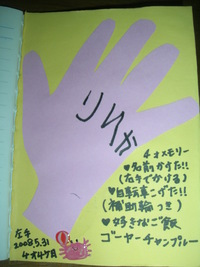 りんか
4才メモリー
♥名前かけた!!
(左手でかける)
♥自転車こげた!!
(補助輪つき)
♥好きなご飯
ゴーヤーチャンプルー
左手
2008.5.31
4才4ヶ月